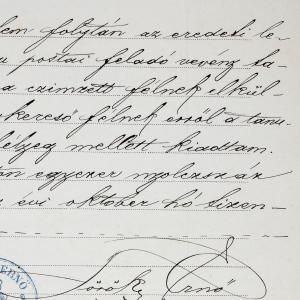 lem folytán az eredeti le-
u postai feladó vevény ta-
a czimzett félnek elkül-
kereső félnek erről a tanu-
bélyeg mellett kiadtam.
án egyezer nyolczszáz
évi október hó tizen-
Török Ernő
ERNŐ